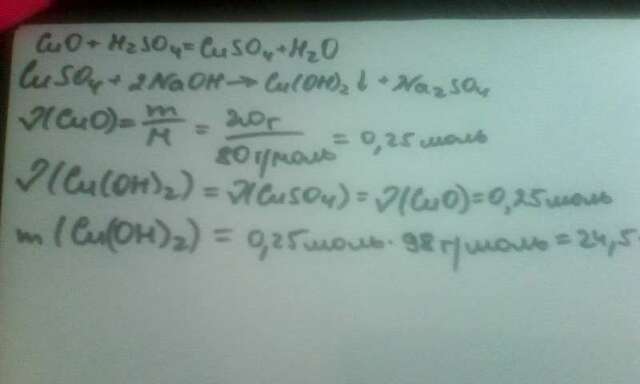 CuO + H2SO4 = CuSO4 + H2O
CuSO4 + 2NaOH → Cu(OH)2 ↓ + Na2SO4
ν(CuO) = m/M = 20г/80 г/моль = 0,25 моль
ν(Cu(OH)2) = ν(CuSO4) = ν(CuO) = 0,25 моль
m (Cu(OH)2) = 0,25 моль · 98 г/моль = 24,5